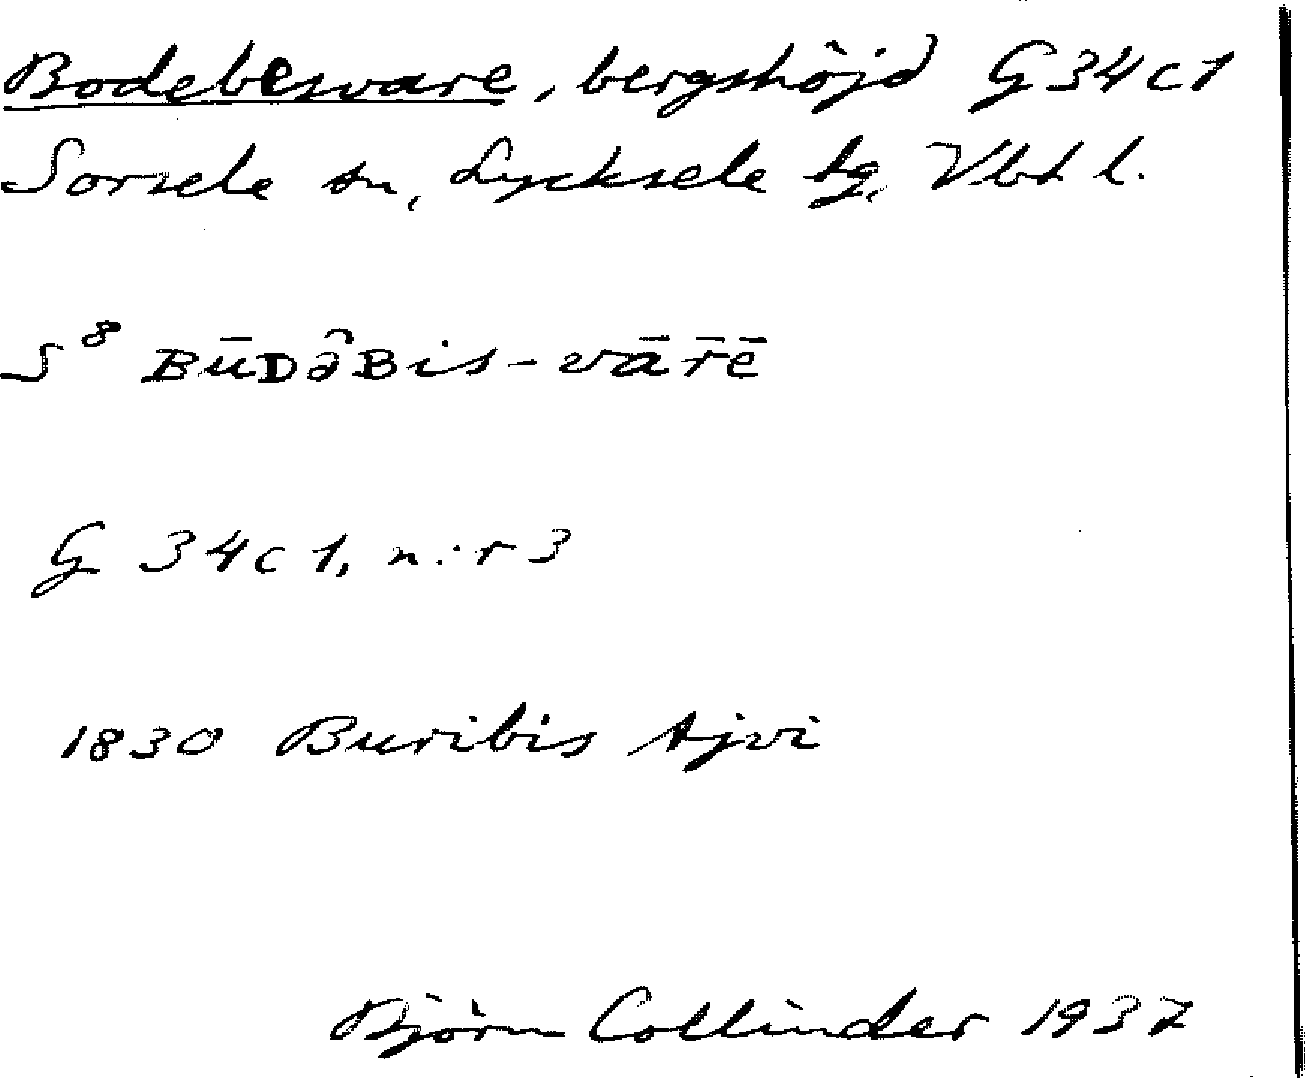 Bodebesvare, bergshöjd G 34 c 1
Sorsele sn, Lycksele tg, Vbt l.
S⁸ Būᴅə̑ʙis-vār̄ē
G 34 c 1, n:r 3
1830 Buribis tjvi
Björn Collinder 1937